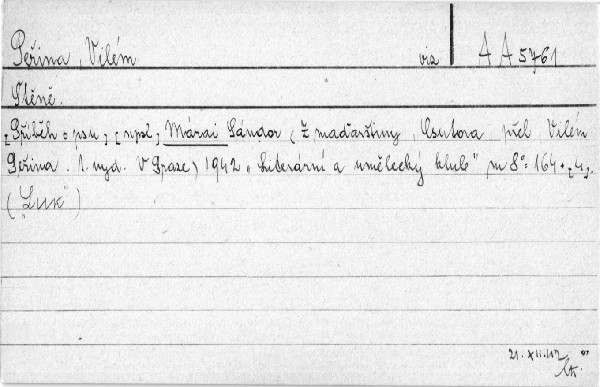 Peřina, Vilém viz AA 5761
Štěně.
[Příběh o psu,] [naps.] Márai Sándor (Z maďarštiny, Csutora přel. Vilém
Peřina. 1. vyd. V Praze) 1942 „Literární a umělecký klub" m 8°: 164+[4].
("Luk")
21.XII.42